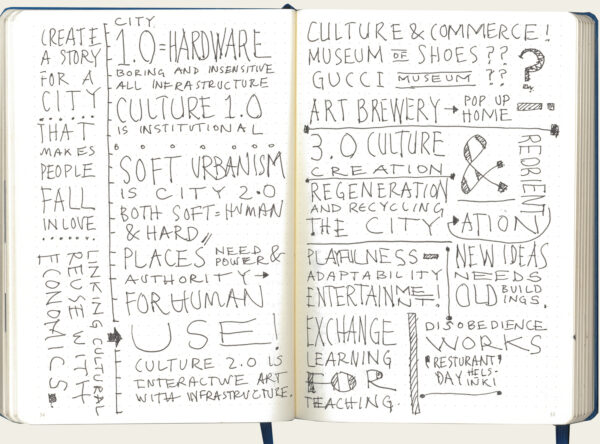 CREATE
A STORY
FOR A
CITY
THAT
MAKES
PEOPLE
FALL
IN LOVE
LINKING CULTURAL
REUSE WITH
ECONOMICS.
CITY
1.0=HARDWARE
BORING AND INSENSITIVE
ALL INFRASTRUCTURE
CULTURE 1.0
IS INSTITUTIONAL
SOFT URBANISM
IS CITY 2.0
BOTH SOFT=HUMAN
& HARD
PLACES NEED POWER &
AUTHORITY →
FOR HUMAN
USE!
CULTURE 2.0 IS
INTERACTIVE ART
WITH INFRASTRUCTURE.
34
CULTURE & COMMERCE!
MUSEUM OF SHOES ??
GUCCI MUSEUM ??
?
ART BREWERY → POP UP
HOME
3.0 CULTURE
CREATION
&
REORIENT
ATION
REGENERATION
AND RECYCLING
THE CITY
PLAYFULNESS
ADAPTABILITY
ENTERTAINMENT!
NEW IDEAS
NEEDS
OLD BUILD
INGS.
EXCHANGE
LEARNING
FOR
TEACHING.
DISOBEDIENCE
WORKS
RESTURANT
DAY HELS-
INKI